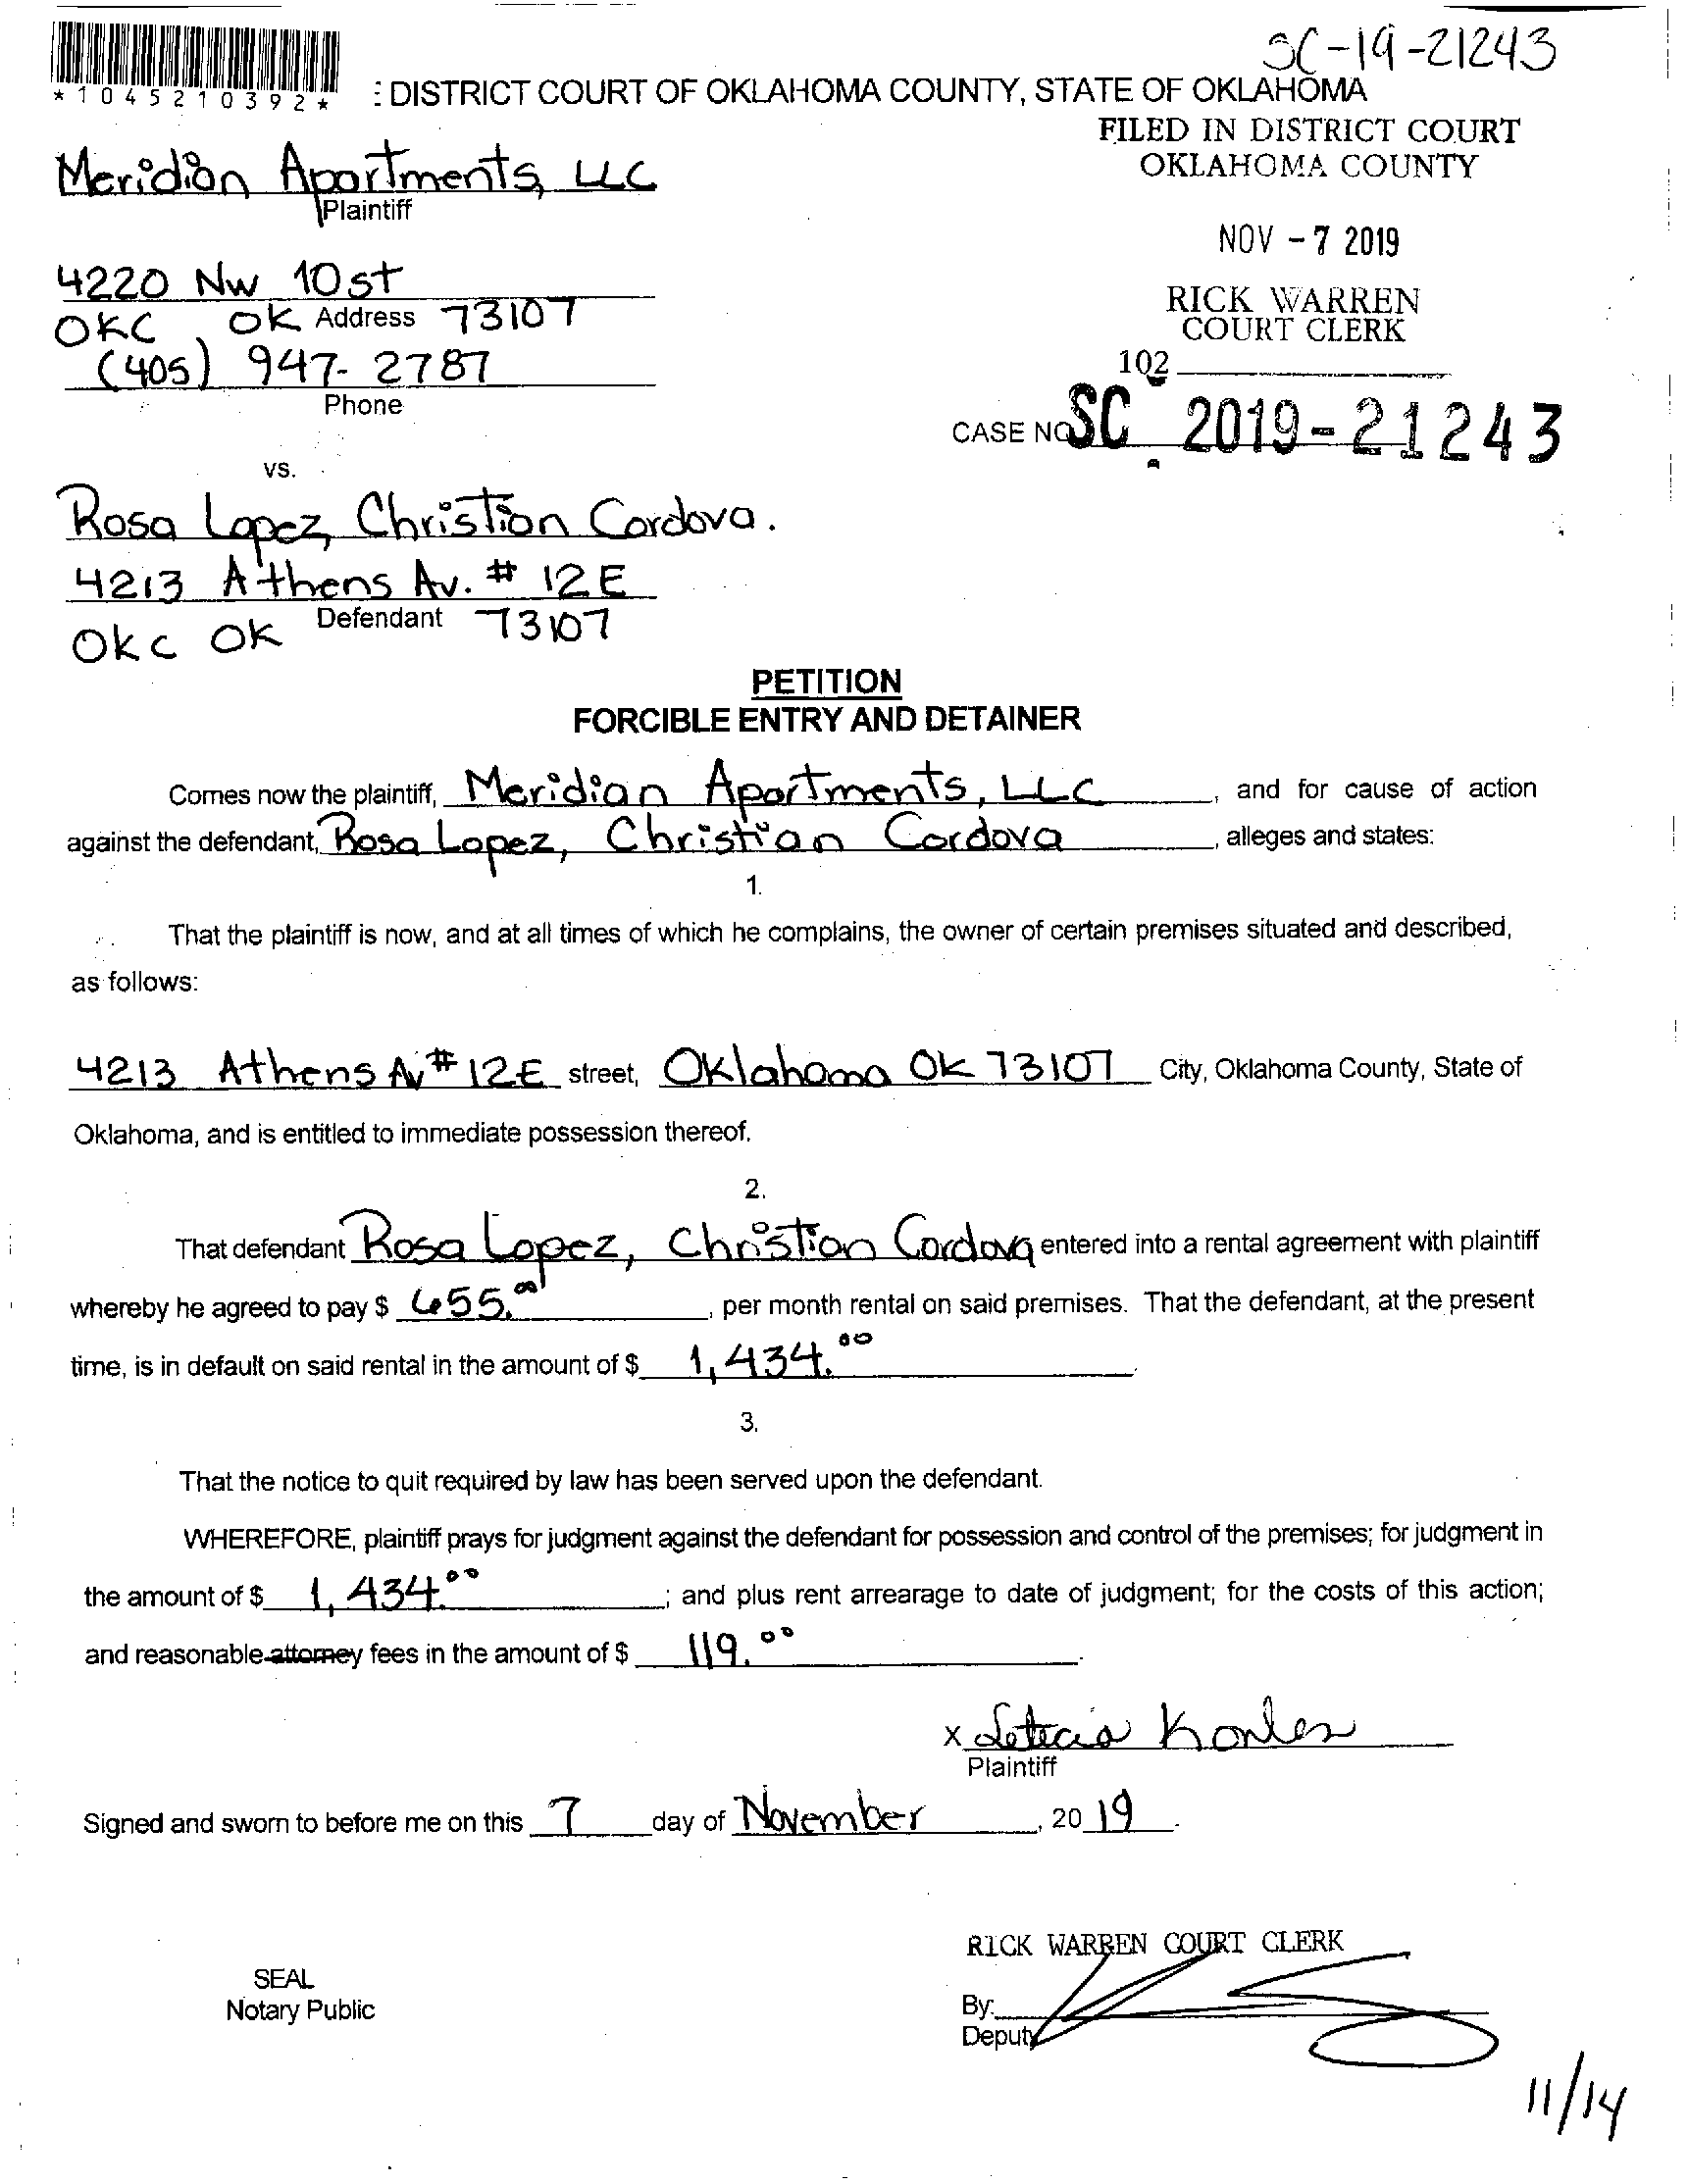 SC-19-21243
*1045210392*
: DISTRICT COURT OF OKLAHOMA COUNTY, STATE OF OKLAHOMA
FILED IN DISTRICT COURT
OKLAHOMA COUNTY
Meridian Apartments, LLC
Plaintiff
NOV - 7 2019
4220 NW 10 st
OKC OK Address 73107
RICK WARREN
COURT CLERK
(405) 947-2787
Phone
102
CASE NO SC 2019-21243
vs.
Rosa Lopez, Christian Cordova.
4213 Athens Av. # 12E
Defendant
OKC OK 73107
PETITION
FORCIBLE ENTRY AND DETAINER
Comes now the plaintiff, Meridian Apartments, LLC, and for cause of action
against the defendant, Rosa Lopez, Christian Cordova, alleges and states:
1.
That the plaintiff is now, and at all times of which he complains, the owner of certain premises situated and described,
as follows:
4213 Athens Av # 12E street, Oklahoma OK 73107 City, Oklahoma County, State of
Oklahoma, and is entitled to immediate possession thereof.
2.
That defendant Rosa Lopez, Christian Cordova entered into a rental agreement with plaintiff
whereby he agreed to pay $ 655.00, per month rental on said premises. That the defendant, at the present
time, is in default on said rental in the amount of $ 1,434.00.
3.
That the notice to quit required by law has been served upon the defendant.
WHEREFORE, plaintiff prays for judgment against the defendant for possession and control of the premises; for judgment in
the amount of $ 1,434.00; and plus rent arrearage to date of judgment; for the costs of this action;
and reasonable attorney fees in the amount of $ 119.00.
X
Plaintiff
Signed and sworn to before me on this 7 day of November, 2019.
RICK WARREN COURT CLERK
SEAL
Notary Public
By:
Deputy
11/14